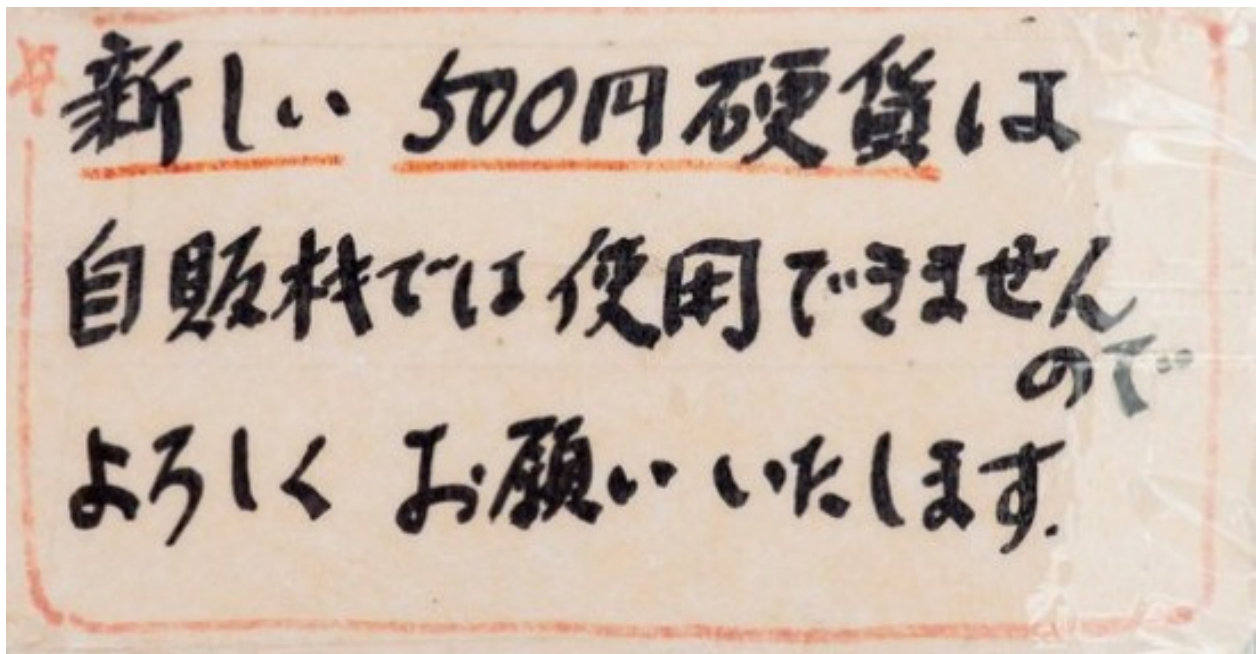 ☆新しい 500円硬貨は
自販機では使用できません
ので
よろしく お願いいたします.